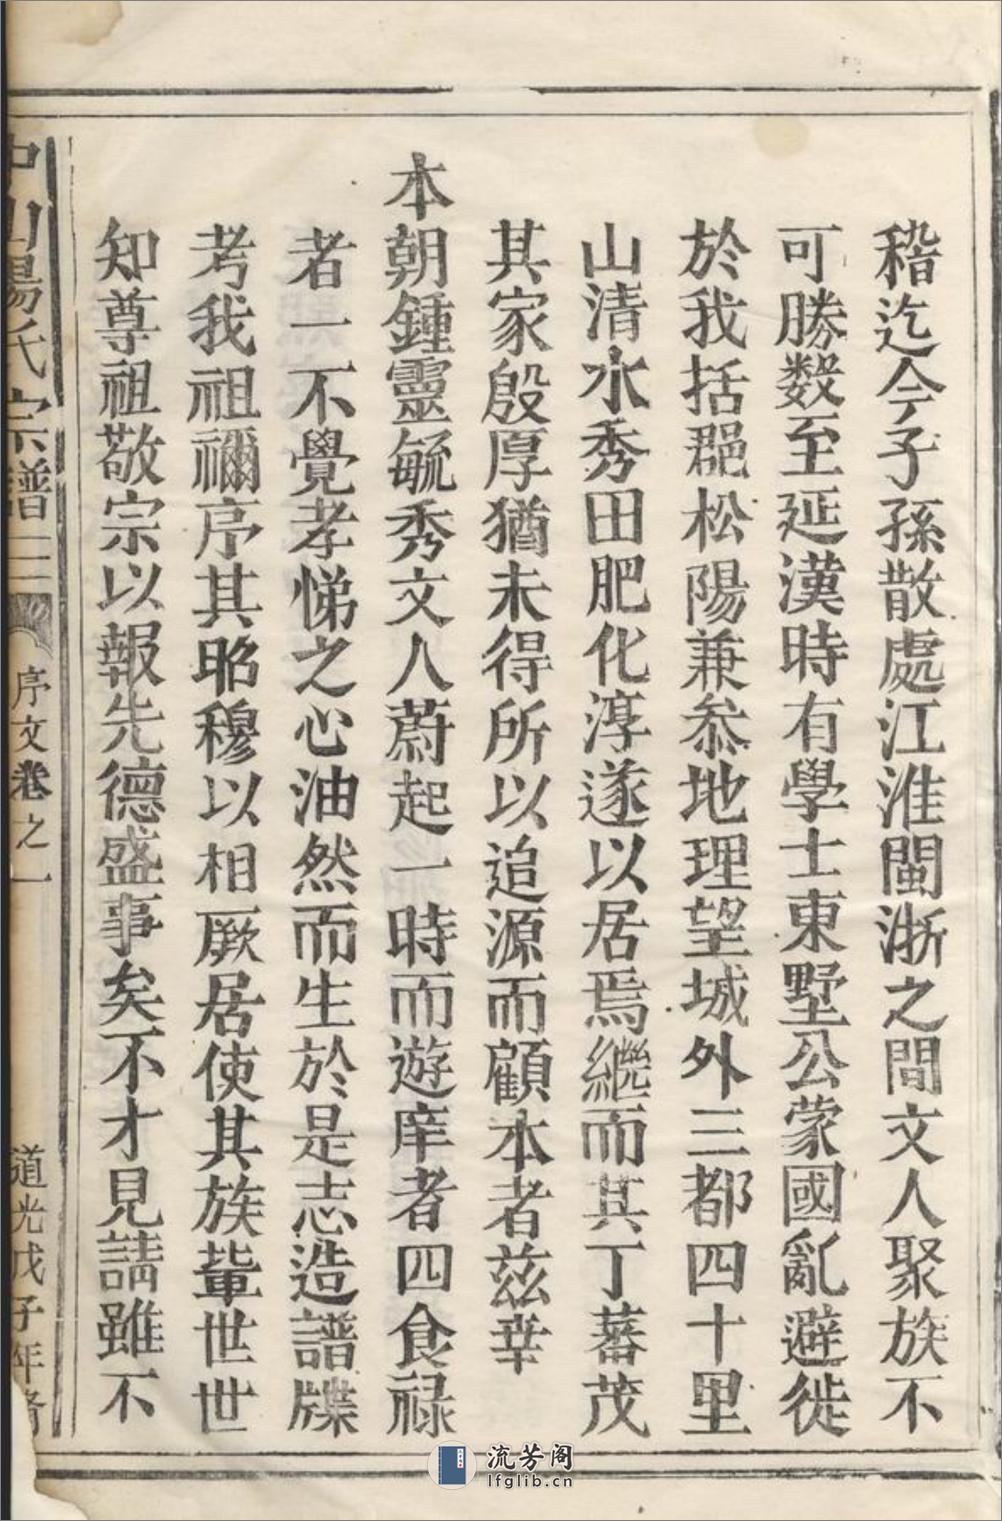 稽迄今子孫散處江淮閩浙之間文人聚族不
可勝數至延漢時有學士東墅公蒙國亂避徙
於我括郡松陽兼叅地理望城外三都四十里
山清水秀田肥化淳遂以居焉繼而其丁蕃茂
其家殷厚猶未得所以追源而顧本者兹幸
本朝鍾靈毓秀文人蔚起一時而遊庠者四食祿
者一不覺孝悌之心油然而生於是志造譜牒
考我祖禰序其昭穆以相厥居使其族輩世世
知尊祖敬宗以報先德盛事矣不才見請雖不
中山湯氏宗譜 序文卷之一 道光戊子年脩
流芳阁
lfglib.cn